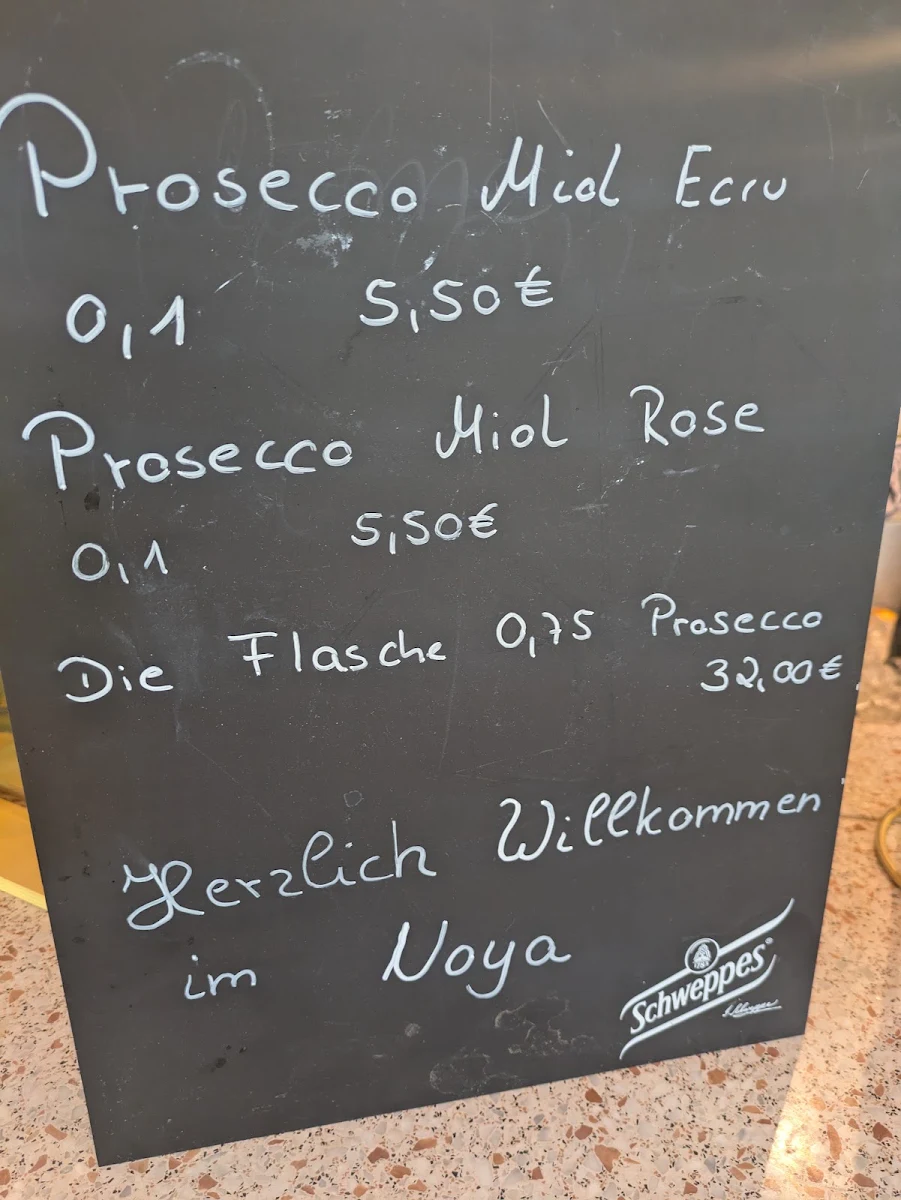 Prosecco Miol Ecru
0,1 5,50€
Prosecco Miol Rose
0,1 5,50€
Die Flasche 0,75 Prosecco
32,00€
Herzlich Willkommen
im Noya
Schweppes